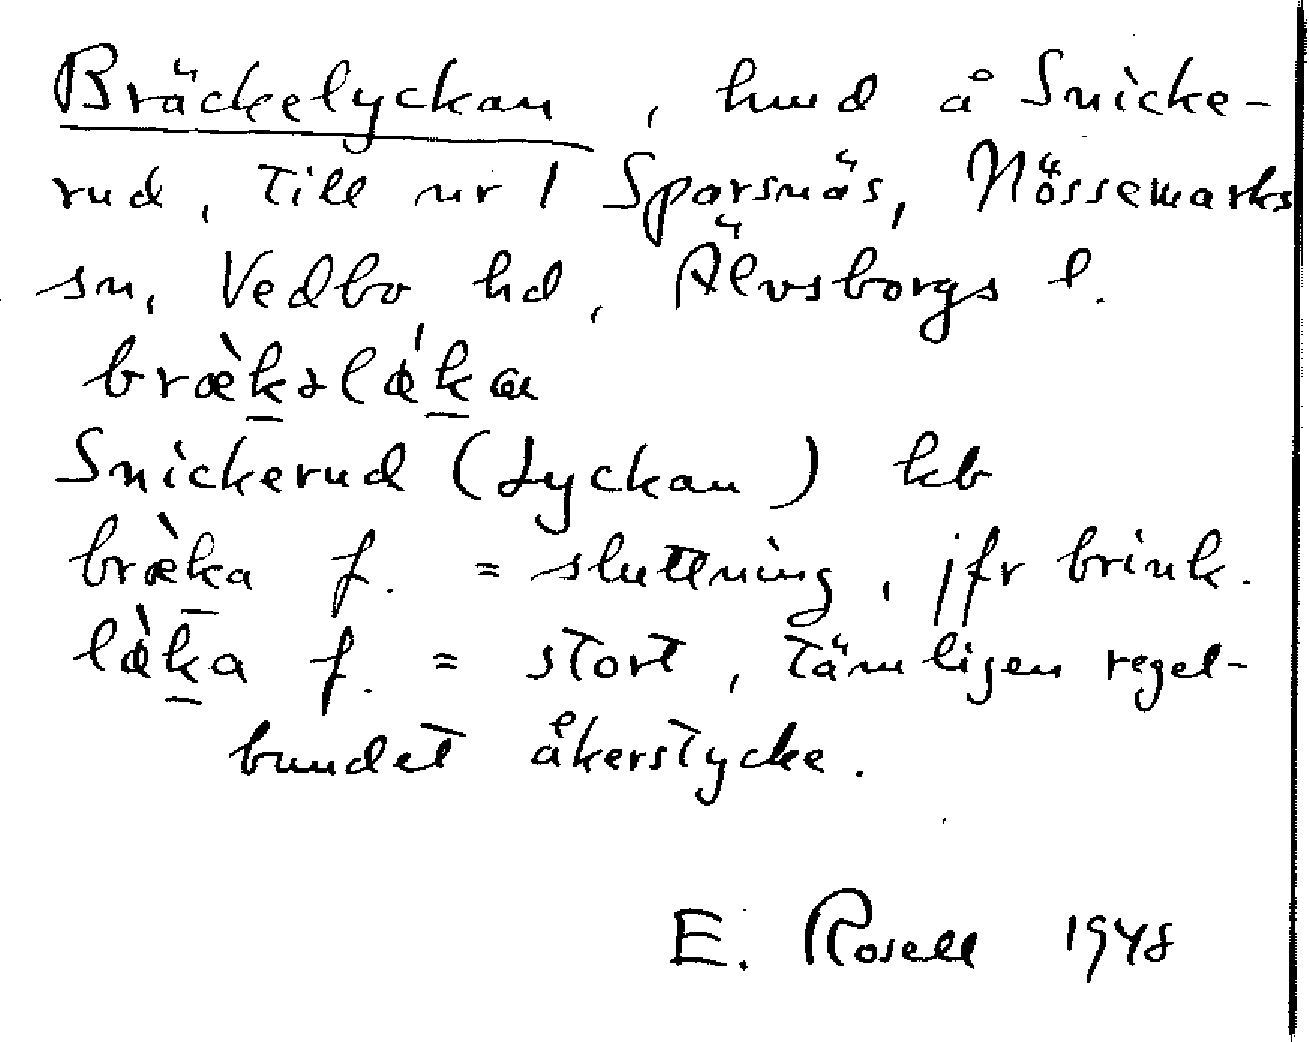 Bräckelyckan, hmd å Snicke-
rud, till nr 1 Sporsnäs, Nössemarks
sn, Vedbo hd, Älvsborgs l.
Snickerud (Lyckan) kb
bræ̀ka f. = sluttning, jfr brink.
f. = stort, tämligen regel-
bundet åkerstycke.
E. Rosell 1948